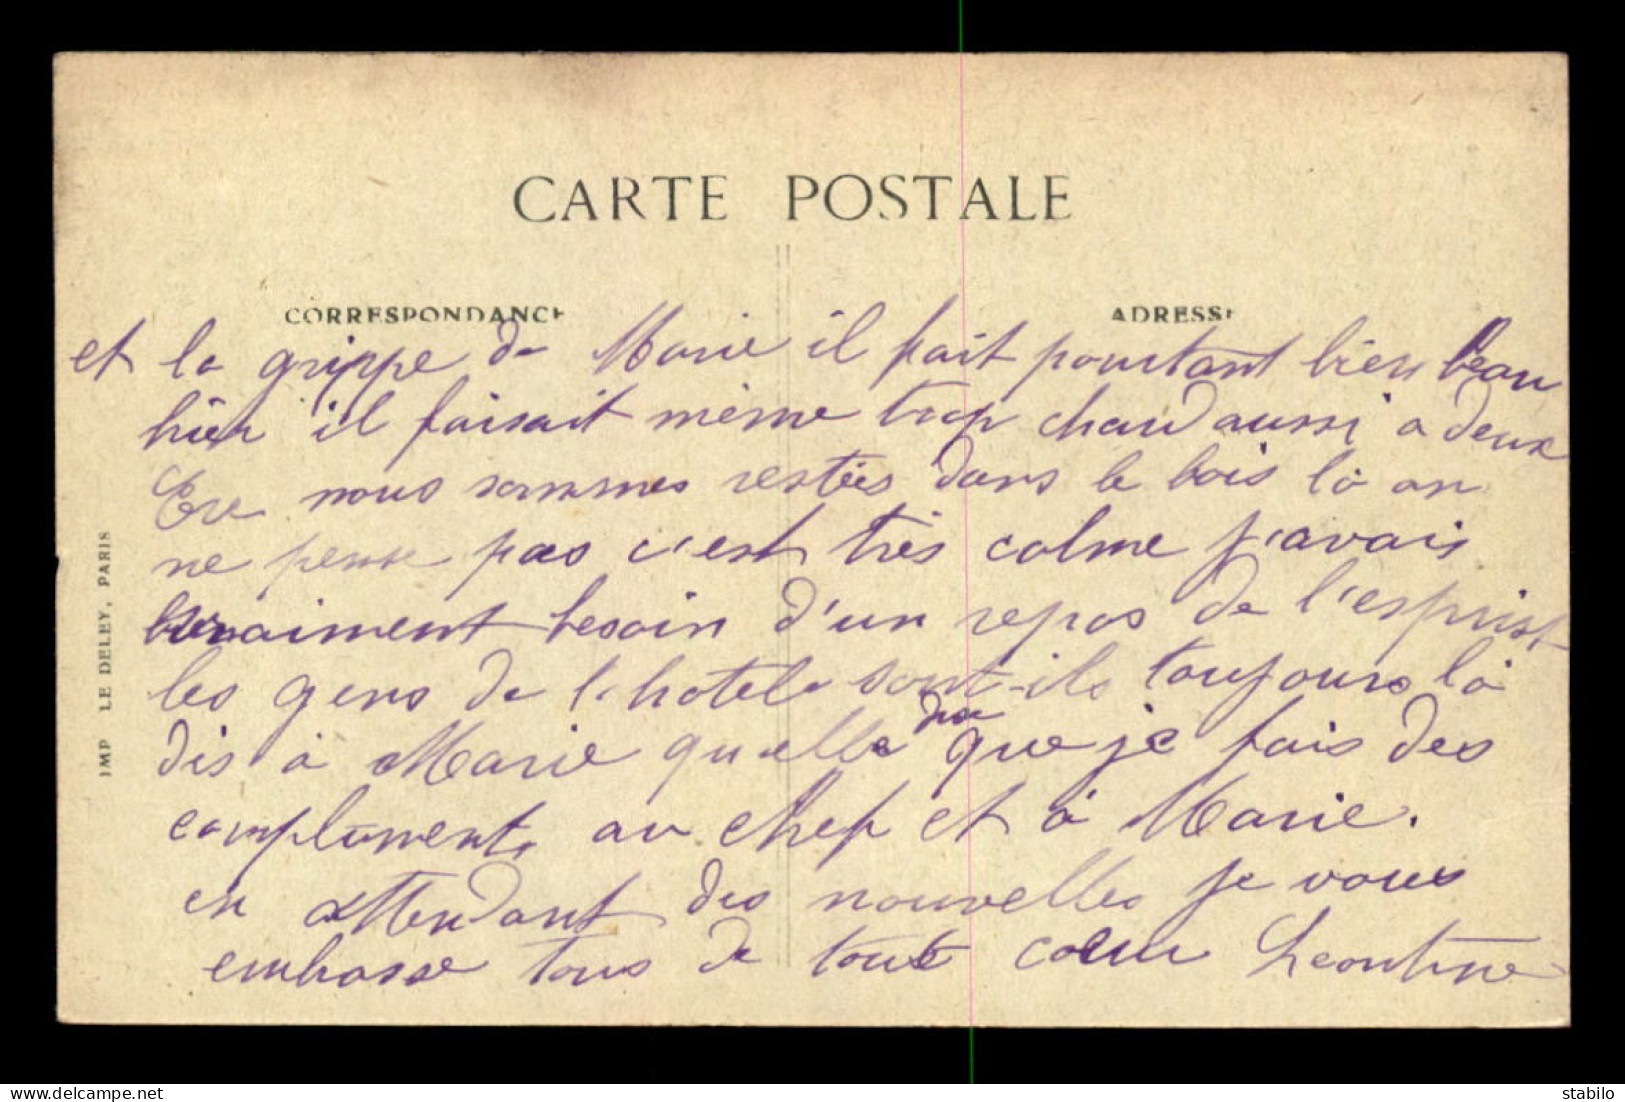 CARTE POSTALE
CORRESPONDANCE
ADRESSE
et la grippe de Marie il fait pourtant bien beau
hier il faisait même trop chaud aussi a deux
nous sommes restées dans le bois là on
ne pense pas c'est très calme j'avais
vraiment besoin d'un repos de l'esprit
les gens de l'hotel sont-ils toujours là
dis à Marie qu'elle dise que je fais des
compliments au chef et à Marie.
en attendant des nouvelles je vous
embrasse tous de tout cœur Leontine
IMP LE DELEY, PARIS
stabilo